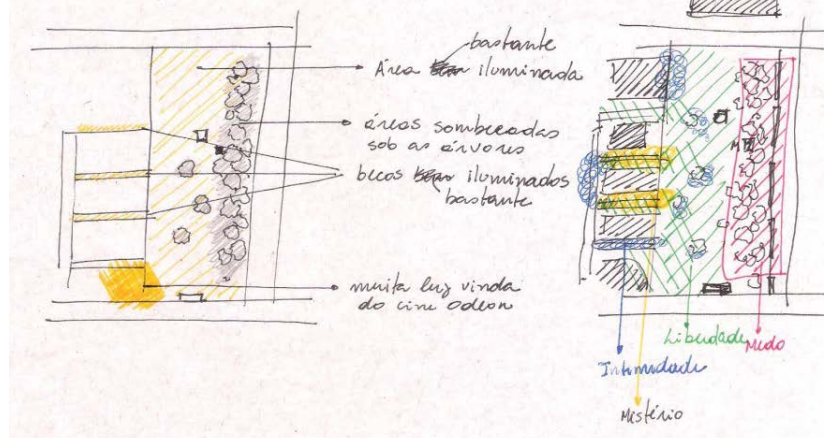 bastante
Área iluminada
áreas sombreadas
sob as árvores
becos iluminados
bastante
muita luz vinda
do cine Odeon
Liberdade
Medo
Intimidade
Mistério